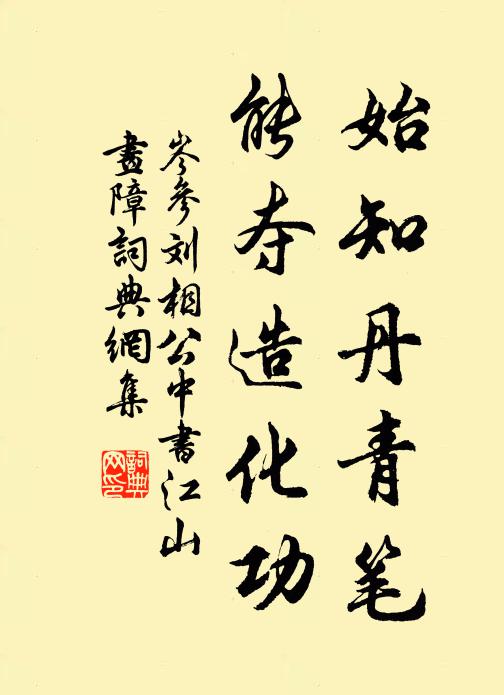 始知丹青笔
能夺造化功
岑参刘相公中书江山
畫障詞典網集
詞典网印